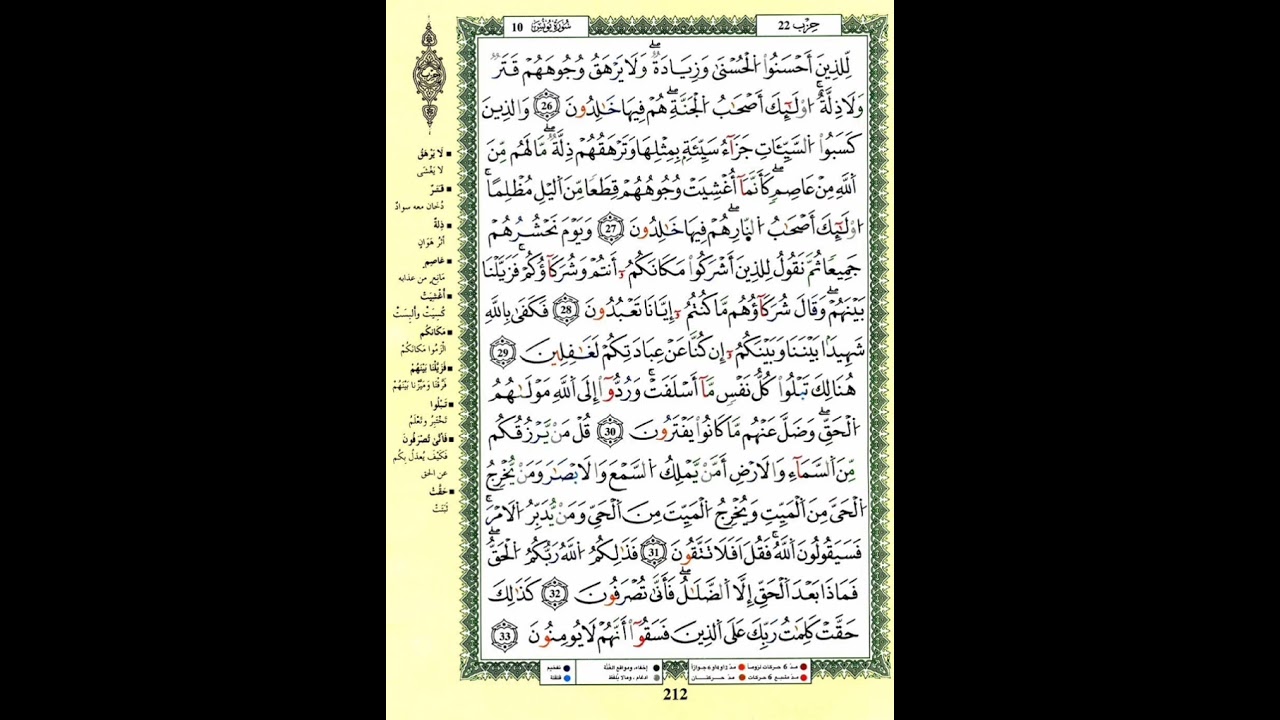 حِزْب 22
سُورَةُ يُونُس 10
لِّلذِينَ أَحْسَنُواْ الْحُسْنَىٰ وَزِيَادَةٌ وَلَا يَرْهَقُ وُجُوهَهُمْ قَتَرٌ
وَلَا ذِلَّةٌ اوْلَٰٓئِكَ أَصْحَٰبُ الْجَنَّةِ هُمْ فِيهَا خَٰلِدُونَ 26 وَالذِينَ
كَسَبُواْ السَّيِّـَٔاتِ جَزَآءُ سَيِّئَةِۢ بِمِثْلِهَا وَتَرْهَقُهُمْ ذِلَّةٌ مَّا لَهُم مِّنَ
اَللَّهِ مِنْ عَاصِمٍ كَأَنَّمَآ أُغْشِيَتْ وُجُوهُهُمْ قِطَعًا مِّنَ اَليْلِ مُظْلِمًا
اوْلَٰٓئِكَ أَصْحَٰبُ النّ۪ارِ هُمْ فِيهَا خَٰلِدُونَ 27 وَيَوْمَ نَحْشُرُهُمْ
جَمِيعًا ثُمَّ نَقُولُ لِلذِينَ أَشْرَكُواْ مَكَانَكُمُۥٓ أَنتُمْ وَشُرَكَآؤُكُمْ فَزَيَّلْنَا
بَيْنَهُمْ وَقَالَ شُرَكَآؤُهُم مَّا كُنتُمُۥٓ إِيَّانَا تَعْبُدُونَ 28 فَكَفَىٰ بِاللَّهِ
شَهِيدًۢا بَيْنَنَا وَبَيْنَكُمُۥٓ إِن كُنَّا عَنْ عِبَادَتِكُمْ لَغَٰفِلِينَ 29
هُنَالِكَ تَبْلُواْ كُلُّ نَفْسٍ مَّآ أَسْلَفَتْ وَرُدُّوٓاْ إِلَى اَللَّهِ مَوْلَىٰهُمُ
الْحَقِّ وَضَلَّ عَنْهُم مَّا كَانُواْ يَفْتَرُونَ 30 قُلْ مَنْ يَّرْزُقُكُم
مِّنَ اَلسَّمَآءِ وَالَارْضِ أَمَّنْ يَّمْلِكُ السَّمْعَ وَالَابْصَٰرَ وَمَنْ يُّخْرِجُ
الْحَيَّ مِنَ اَلْمَيِّتِ وَيُخْرِجُ الْمَيِّتَ مِنَ اَلْحَيِّ وَمَنْ يُّدَبِّرُ الَامْرَ
فَسَيَقُولُونَ اَللَّهُ فَقُلَ اَفَلَا تَتَّقُونَ 31 فَذَٰلِكُمُ اللَّهُ رَبُّكُمُ الْحَقُّ
فَمَاذَا بَعْدَ اَلْحَقِّ إِلَّا اَلضَّلَٰلُ فَأَنَّىٰ تُصْرَفُونَ 32 كَذَٰلِكَ
حَقَّتْ كَلِمَٰتُ رَبِّكَ عَلَى اَلذِينَ فَسَقُوٓاْ أَنَّهُمْ لَا يُومِنُونَ 33
حزب
■ لَا يَرْهَقُ
لا يَغْشَى
■ قَتَرٌ
دُخان معه سوادٌ
■ ذِلَّةٌ
أثَرُ هَوَانٍ
■ عَاصِمٍ
مَانِعٍ من عذابه
■ أُغْشِيَتْ
كُسِيَتْ وأُلبِسَتْ
■ مَكَانَكُم
الْزَمُوا مَكَانَكُمْ
■ فَزَيَّلْنَا بَيْنَهُمْ
فَرَّقْنا وَمَيَّزْنا بَيْنَهُمْ
■ تَبْلُوا
تَخْتَبِرُ وتَعْلَمُ
■ فَأَنَّىٰ تُصْرَفُونَ
فَكَيْفَ يُعدَلُ بِكُم
عن الحق
■ حَقَّتْ
ثَبَتَتْ
مدّ 6 حركات لزوماً مدّ 2 أو 4 أو 6 جوازاً إخفاء، ومواقع الغُنَّة تفخيم
مدّ مشبع 6 حركات مدّ حركتان ادغام، وما لا يُلفَظ قلقلة
212